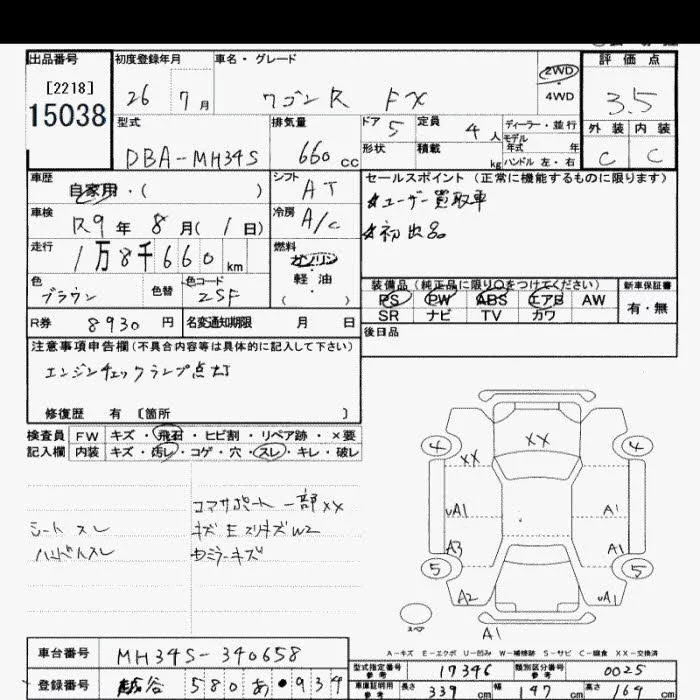 出品番号 初度登録年月 車名・グレード 2WD 評価点
[2218] 4WD
15038 26 7月 ワゴンR FX 3.5
型式 排気量 ドア 5 定員 4人 ディーラー・並行 外装 内装
モデル年式 年
DBA-MH34S 660cc 形状 積載 kg ハンドル 左・右 C C
車歴 自家用・( ) シフト AT セールスポイント(正常に機能するものに限ります)
車検 R9年 8月(1日) 冷房 A/C ☆ユーザー買取車
☆初出品
走行 1万8千660km 燃料 ガソリン
軽油
( )
色 ブラウン 色替 色コード ZSF 装備品(純正品に限り○をつけてください) 新車保証書
PS PW ABS エアB AW 有・無
SR ナビ TV カワ
R券 8930円 名変通知期限 月 日 後日品
注意事項申告欄(不具合内容等は具体的に記入して下さい)
エンジンチェックランプ点灯
修復歴 有 〔箇所 〕
検査員 FW キズ・飛石・ヒビ割・リペア跡・×要
記入欄 内装 キズ・汚レ・コゲ・穴・スレ・キレ・破レ
コアサポート一部XX
シートスレ キズEスリキズW2
ハンドルスレ
4 XX 4
XX
uA1 A1
A3 A1
5 5
A2 uA1
スペア
A1
A-キズ E-エクボ U-凹み W-補修跡 S-サビ C-腐食 XX-交換済
車台番号 MH34S-340658 型式指定番号 参考 17346 類別区分番号 参考 0025
登録番号 越谷 580 あ・934 車庫証明用 参考 長さ 339cm 幅 147cm 高さ 164cm